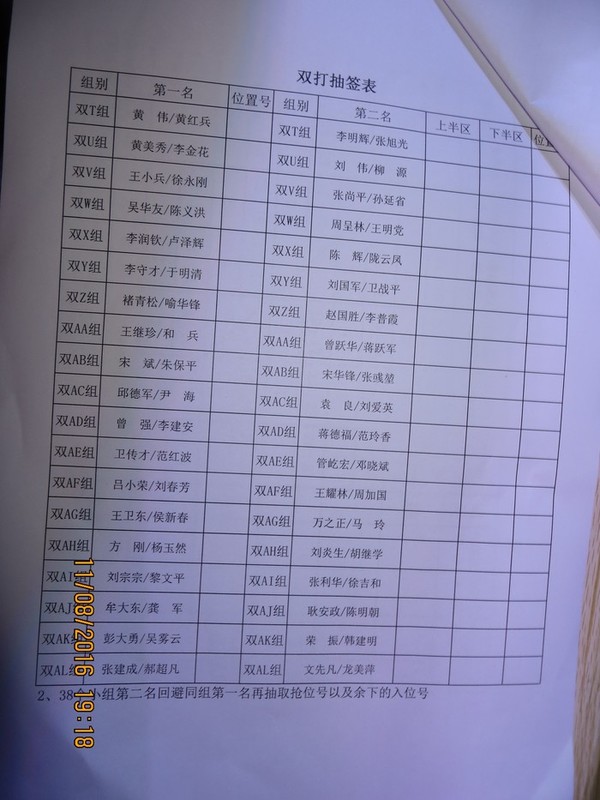 双打抽签表
组别 第一名 位置号 组别 第二名 上半区 下半区
双T组 黄 伟/黄红兵 双T组 李明辉/张旭光
双U组 黄美秀/李金花 双U组 刘 伟/柳 源
双V组 王小兵/徐永刚 双V组 张尚平/孙延省
双W组 吴华友/陈义洪 双W组 周呈林/王明党
双X组 李润钦/卢泽辉 双X组 陈 辉/陇云风
双Y组 李守才/于明清 双Y组 刘国军/卫战平
双Z组 褚青松/喻华锋 双Z组 赵国胜/李普霞
双AA组 王继珍/和 兵 双AA组 曾跃华/蒋跃军
双AB组 宋 斌/朱保平 双AB组 宋华锋/张彧堃
双AC组 邱德军/尹 海 双AC组 袁 良/刘爱英
双AD组 曾 强/李建安 双AD组 蒋德福/范玲香
双AE组 卫传才/范红波 双AE组 管屹宏/邓晓斌
双AF组 吕小荣/刘春芳 双AF组 王耀林/周加国
双AG组 王卫东/侯新春 双AG组 万之正/马 玲
双AH组 方 刚/杨玉然 双AH组 刘炎生/胡继学
双AI组 刘宗宗/黎文平 双AI组 张利华/徐吉和
双AJ 牟大东/龚 军 双AJ组 耿安政/陈明朝
双AK组 彭大勇/吴雾云 双AK组 荣 振/韩建明
双AL组 张建成/郝超凡 双AL组 文先凡/龙美萍
2、38 小组第二名回避同组第一名再抽取抢位号以及余下的入位号
11/08/2016 19:18